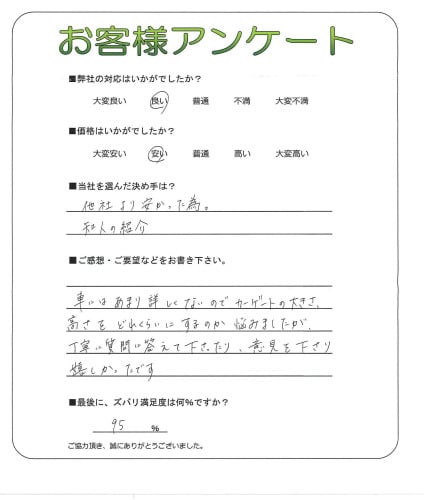 お客様アンケート
■弊社の対応はいかがでしたか？
大変良い 良い 普通 不満 大変不満
■価格はいかがでしたか？
大変安い 安い 普通 高い 大変高い
■当社を選んだ決め手は？
他社より安かった為。
知人の紹介
■ご感想・ご要望などをお書き下さい。
車にはあまり詳しくないのでカーゲートの大きさ、
高さをどれくらいにするのか悩みましたが、
丁寧に質問に答えて下さったり、意見を下さり
嬉しかったです
■最後に、ズバリ満足度は何%ですか？
95 %
ご協力頂き、誠にありがとうございました。